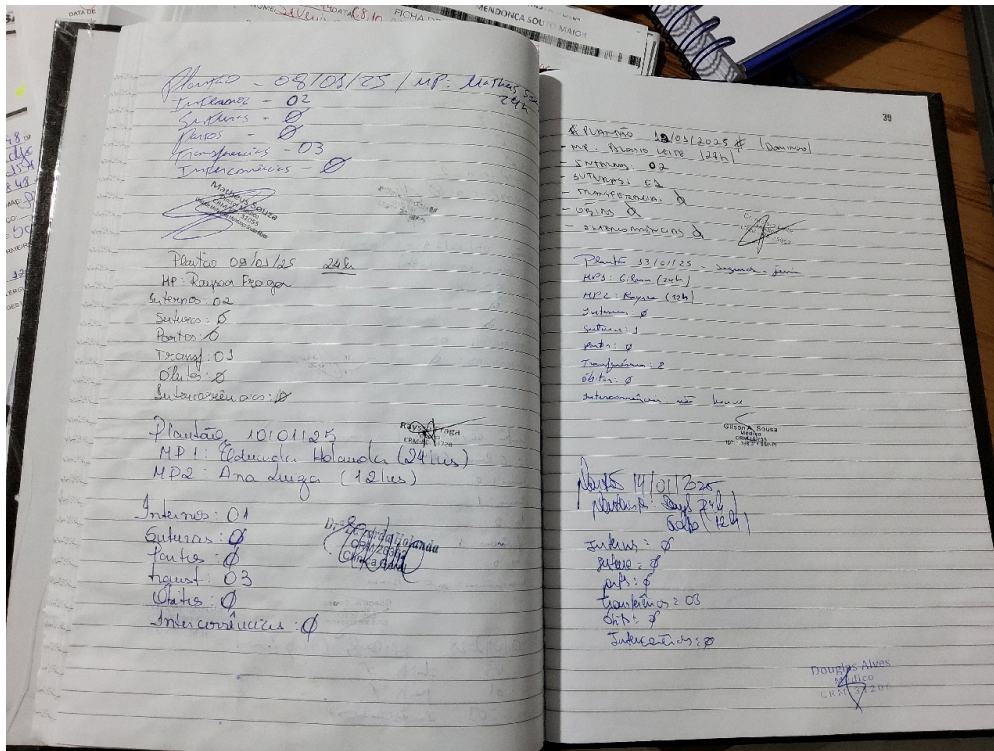 DATA DE
FICHA DE
MENDONÇA SOUTO MAIOR
Plantão - 08/01/25 / MP: Matheus
24h
Internos - 02
Suturas - Ø
Partos - Ø
Transferências - 03
Intercorrências - Ø
Matheus Souza
Plantão 09/01/25 24h
MP: Rayssa Fraga
Internos: 02
Suturas: Ø
Partos: Ø
Transf: 01
Óbitos: Ø
Intercorrências: Ø
Plantão 10/01/25
MP1: Eduarda Holanda (24hs)
MP2: Ana Luiza (12hs)
Internos: 01
Suturas: Ø
Partos: Ø
Transf: 03
Óbitos: Ø
Intercorrências: Ø
Holanda
39
PLANTÃO 12/01/2025 (Domingo)
- MP: LEITE (24h)
- INTERNOS: 02
- SUTURAS: 02
- TRANSFERÊNCIA: Ø
- ÓBITOS Ø
- INTERCORRÊNCIAS Ø
Plantão 13/01/25 - segunda-feira
MP1: Gilson (24h)
MP2: Rayssa (12h)
Internos: Ø
Sutura: 1
Partos: Ø
Transferências: 2
Óbitos: Ø
Intercorrências não houve
Gilson A. Sousa
Médico
Plantão 14/01/2025
24h
(12h)
Internos: Ø
Sutura: Ø
Partos: Ø
Transferências: 03
Óbitos: Ø
Intercorrências: Ø
Douglas Alves
Médico
CRM